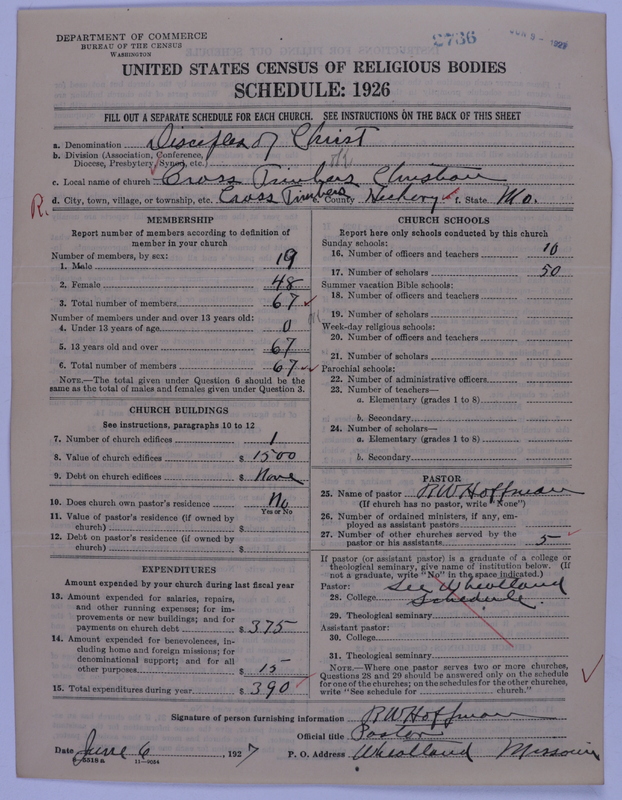 DEPARTMENT OF COMMERCE
BUREAU OF THE CENSUS
WASHINGTON
2736
JUN 9 - 1927
UNITED STATES CENSUS OF RELIGIOUS BODIES
SCHEDULE: 1926
FILL OUT A SEPARATE SCHEDULE FOR EACH CHURCH. SEE INSTRUCTIONS ON THE BACK OF THIS SHEET
a. Denomination Disciples of Christ
b. Division (Association, Conference,
Diocese, Presbytery, Synod, etc.)
c. Local name of church Cross Timbers Christian
R. d. City, town, village, or township, etc. Cross Timbers e. County Hickory f. State Mo.
MEMBERSHIP
Report number of members according to definition of
member in your church
Number of members, by sex:
1. Male 19
2. Female 48
3. Total number of members 67
Number of members under and over 13 years old:
4. Under 13 years of age 0
5. 13 years old and over 67
6. Total number of members 67
NOTE.—The total given under Question 6 should be the
same as the total of males and females given under Question 3.
CHURCH BUILDINGS
See instructions, paragraphs 10 to 12
7. Number of church edifices 1
8. Value of church edifices $ 1500
9. Debt on church edifices $ None
10. Does church own pastor's residence No
Yes or No
11. Value of pastor's residence (if owned by
church) $
12. Debt on pastor's residence (if owned by
church) $
EXPENDITURES
Amount expended by your church during last fiscal year
13. Amount expended for salaries, repairs,
and other running expenses; for im-
provements or new buildings; and for
payments on church debt $ 375
14. Amount expended for benevolences, in-
cluding home and foreign missions; for
denominational support; and for all
other purposes $ 15
15. Total expenditures during year $ 390
CHURCH SCHOOLS
Report here only schools conducted by this church
Sunday schools:
16. Number of officers and teachers 10
17. Number of scholars 50
Summer vacation Bible schools:
18. Number of officers and teachers
19. Number of scholars
Week-day religious schools:
20. Number of officers and teachers
21. Number of scholars
Parochial schools:
22. Number of administrative officers
23. Number of teachers—
a. Elementary (grades 1 to 8)
b. Secondary
24. Number of scholars—
a. Elementary (grades 1 to 8)
b. Secondary
PASTOR
25. Name of pastor R W Hoffman
(If church has no pastor, write "None")
26. Number of ordained ministers, if any, em-
ployed as assistant pastors
27. Number of other churches served by the
pastor or his assistants 5
If pastor (or assistant pastor) is a graduate of a college or
theological seminary, give name of institution below. (If
not a graduate, write "No" in the space indicated.)
Pastor: See Wheatland
28. College Schedule
29. Theological seminary
Assistant pastor:
30. College
31. Theological seminary
NOTE.—Where one pastor serves two or more churches,
Questions 28 and 29 should be answered only on the schedule
for one of the churches; on the schedules for the other churches,
write "See schedule for church."
Signature of person furnishing information R W Hoffman
Official title Pastor
Date June 6, 1927 P. O. Address Wheatland Missouri
8-5518 a 11—9054